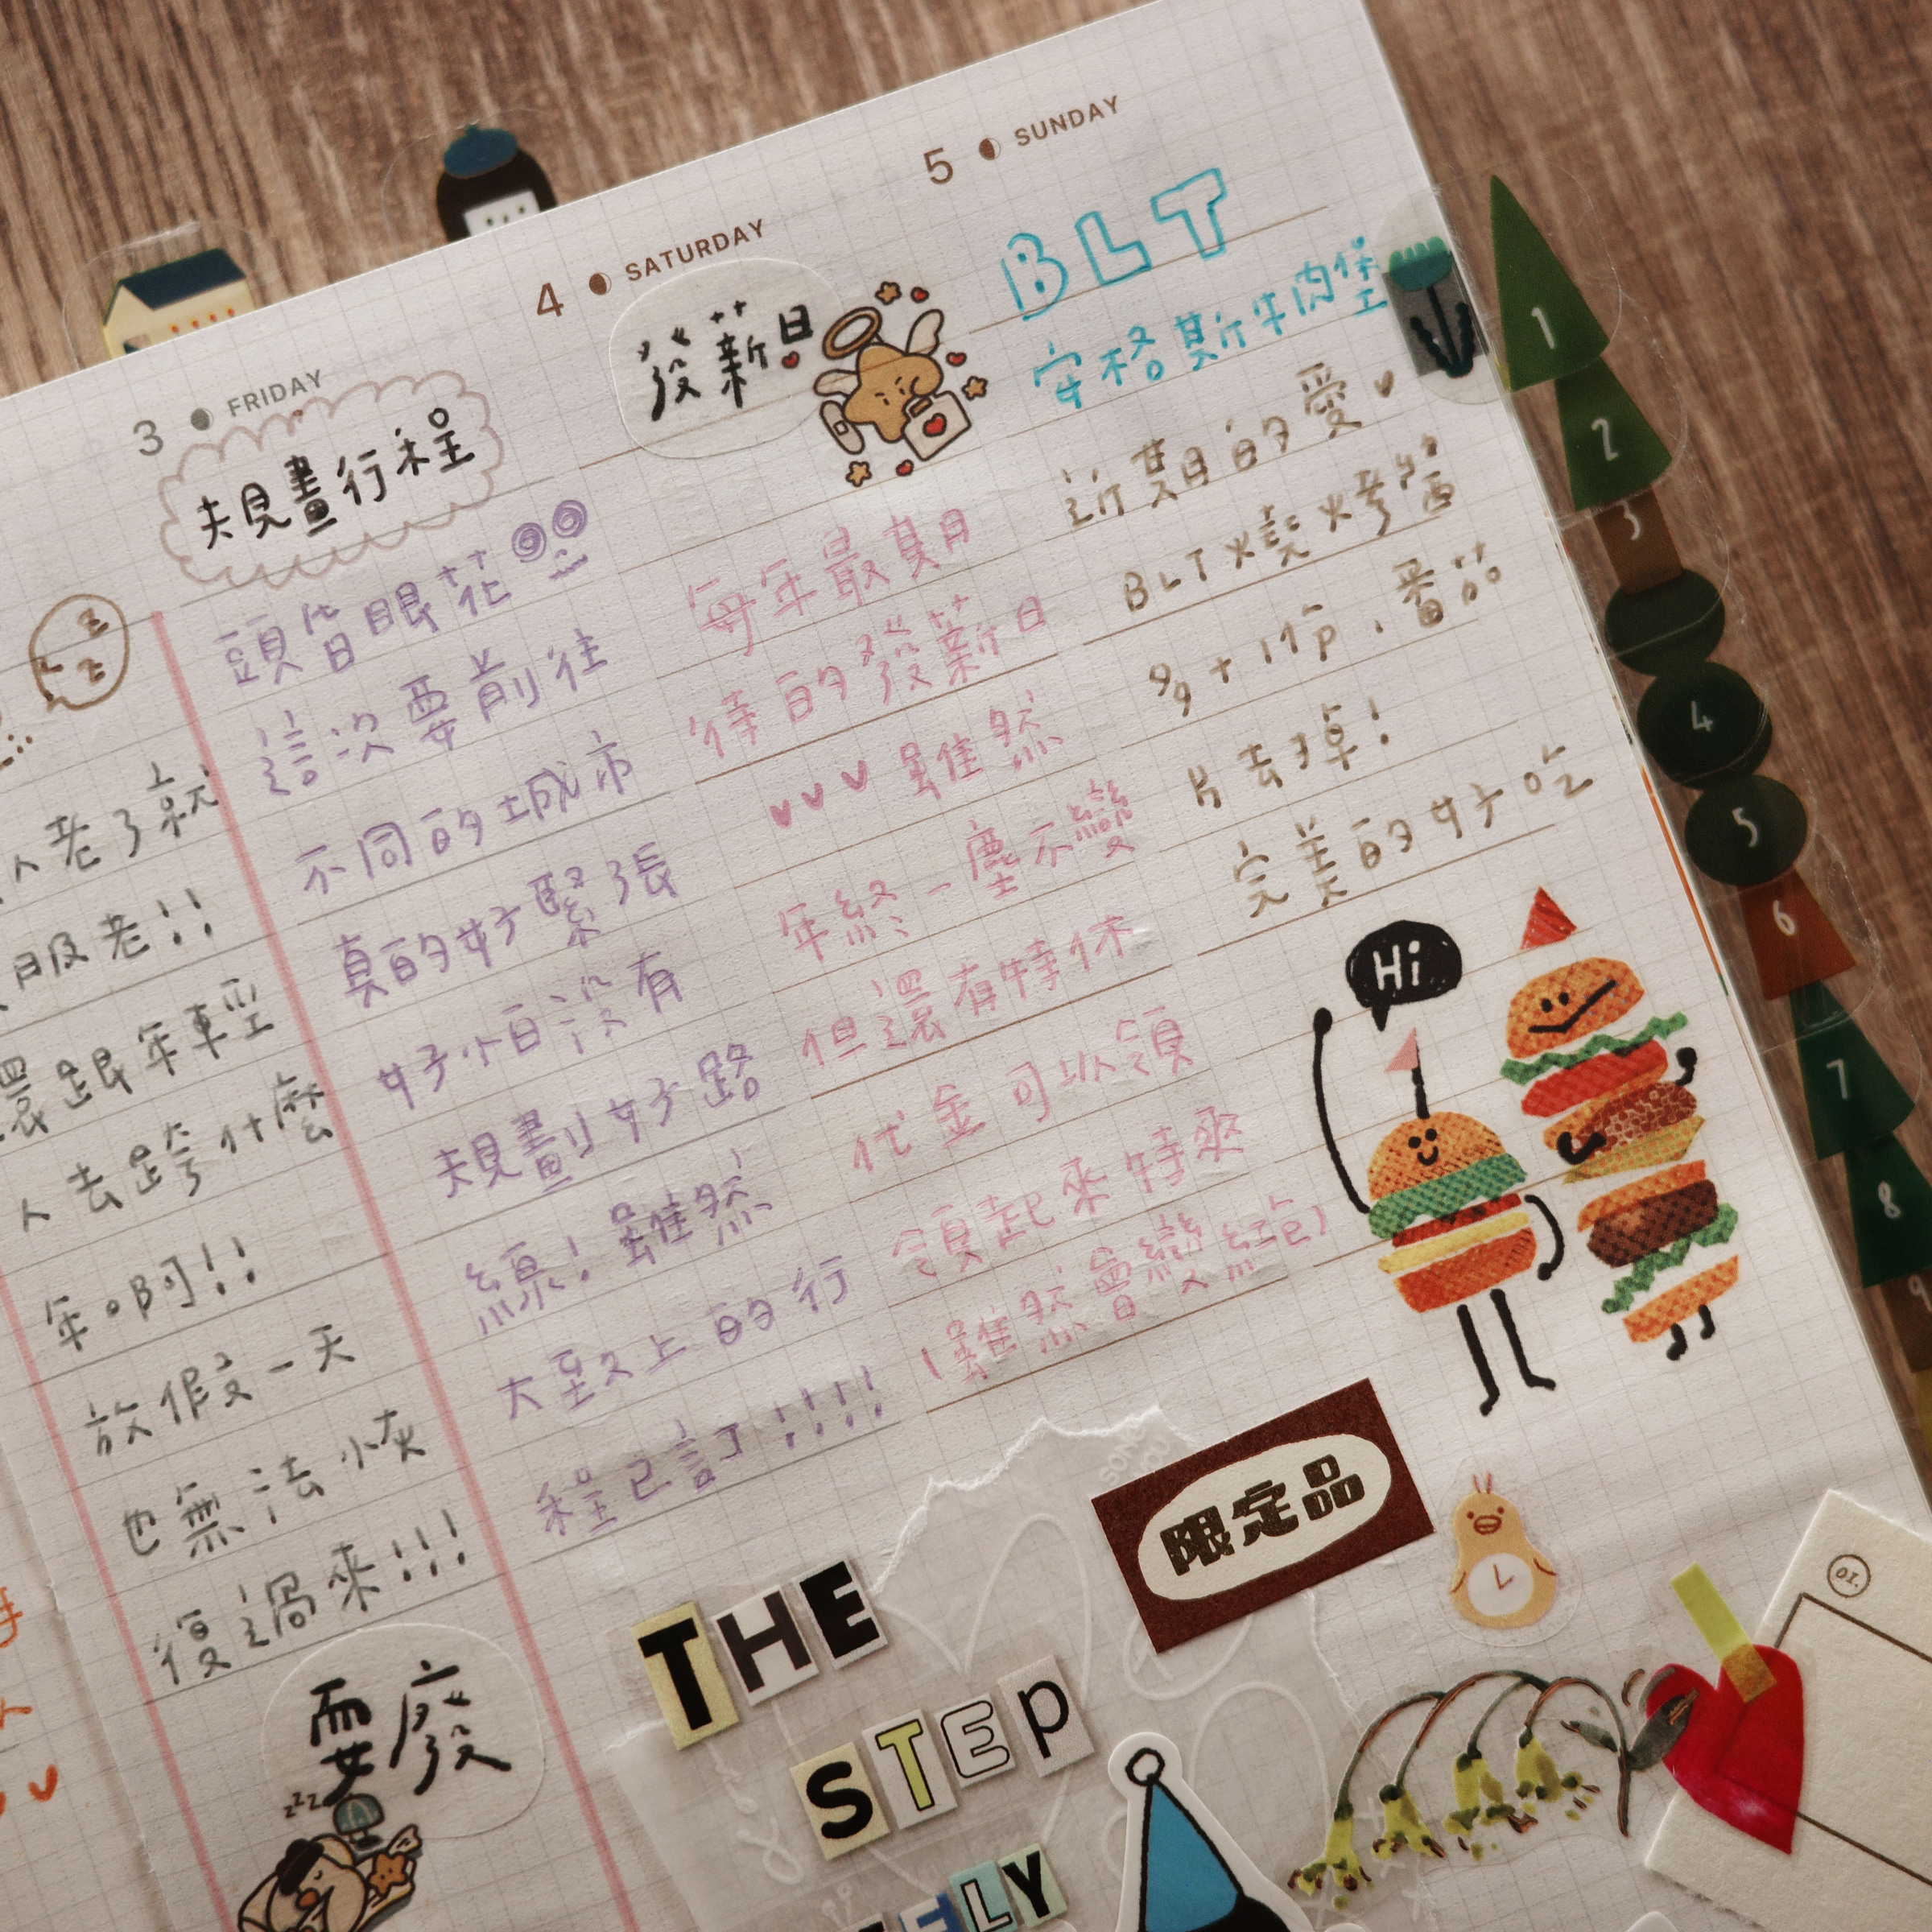 人老了就
服老!!
還跟年輕
人去跨什麼
年啊!!
放假一天
也無法恢
復過來!!!
耍廢
zzz
3 FRIDAY
規畫行程
頭昏眼花
這次要前往
不同的城市
真的好緊張
好怕沒有
規劃好路
線!雖然
大致上的行
程已訂!!!!
4 SATURDAY
發薪日
每年最期
待的發薪日
雖然
年終一塵不變
但還有特休
代金可以領
領起來特爽
(雖然會變紅包)
5 SUNDAY
BLT
安格斯牛肉堡
近期的愛
BLT燒烤醬
99+1份,番茄
片去掉!
完美的好吃
Hi
限定品
THE
STEP
ELY
01.
1
2
3
4
5
6
7
8
9